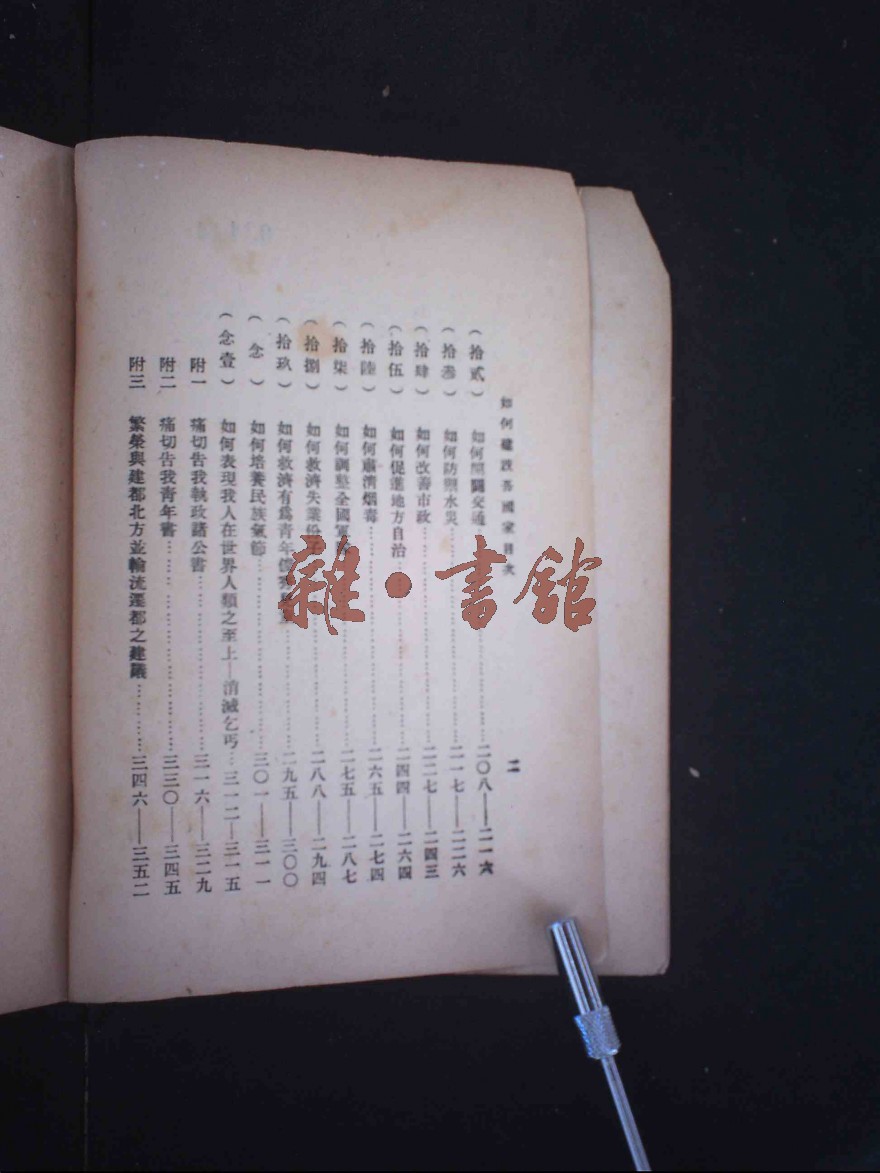 如何建設吾國家目次
二
（拾貳） 如何開闢交通……二〇八——二一六
（拾叁） 如何防禦水災……二一七——二二六
（拾肆） 如何改善市政……二二七——二四三
（拾伍） 如何促進地方自治……二四四——二六四
（拾陸） 如何肅清烟毒……二六五——二七四
（拾柒） 如何調整全國軍……二七五——二八七
（拾捌） 如何救濟失業份子……二八八——二九四
（拾玖） 如何救濟有爲青年……二九五——三〇〇
（念） 如何培養民族氣節……三〇一——三一一
（念壹） 如何表現我人在世界人類之至上—消滅乞丐…三一二—三一五
附一 痛切告我執政諸公書……三一六——三二九
附二 痛切告我青年書……三三〇——三四五
附三 繁榮與建都北方並輪流遷都之建議……三四六——三五二
雜·書館